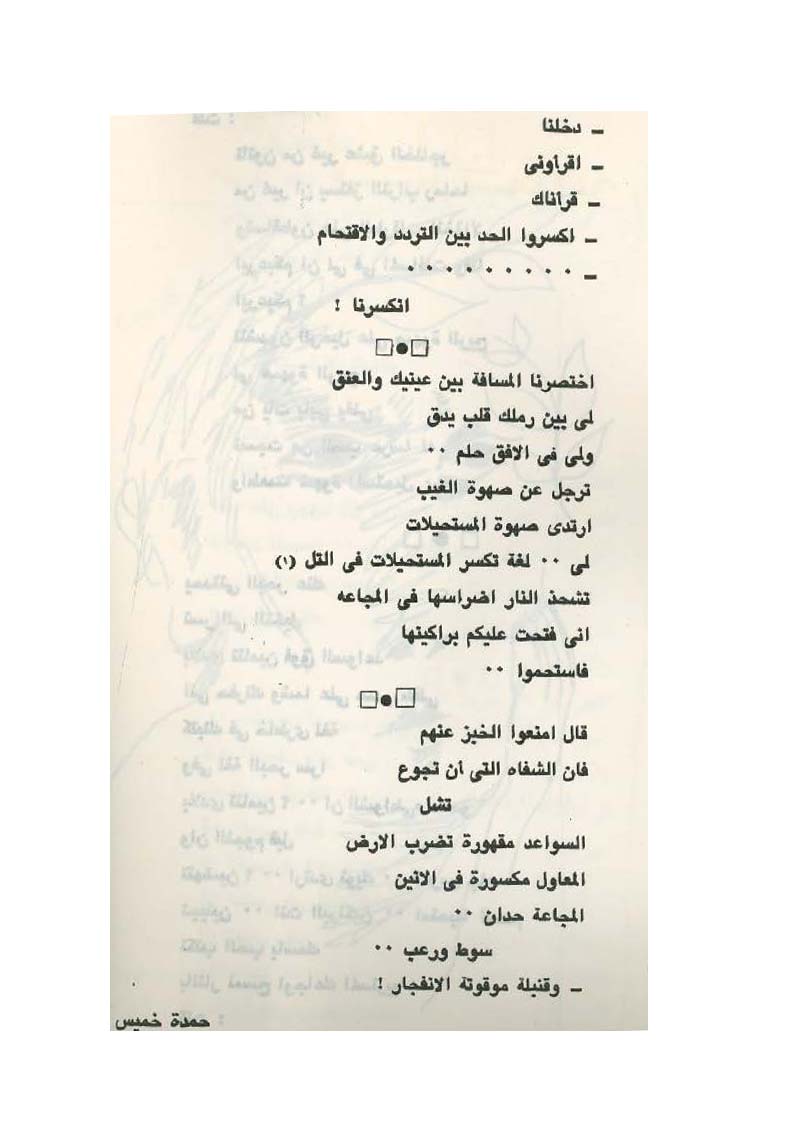 ـ دخلنا
ـ اقرأونى
ـ قرأناك
ـ اكسروا الحد بين التردد والاقتحام
ـ ٠ ٠ ٠ ٠ ٠ ٠ ٠ ٠ ٠
انكسرنا !
□●□
اختصرنا المسافة بين عينيك والعنق
لى بين رملك قلب يدق
ولى فى الافق حلم ٠٠
ترجل عن صهوة الغيب
ارتدى صهوة المستحيلات
لى ٠٠ لغة تكسر المستحيلات فى التل (١)
تشحذ النار اضراسها فى المجاعه
انى فتحت عليكم براكينها
فاستحموا ٠٠
□●□
قال امنعوا الخبز عنهم
فان الشفاه التى أن تجوع
تشل
السواعد مقهورة تضرب الارض
المعاول مكسورة فى الانين
المجاعة حدان ٠٠
سوط ورعب ٠٠
ـ وقنبلة موقوتة الانفجار !
حمدة خميس